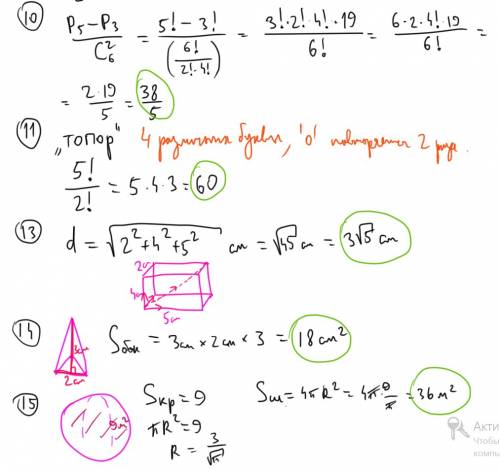 10 (P₅ − P₃)/C₆² = (5! − 3!)/(6!/(2!·4!)) = (3!·2!·4!·19)/6! = (6·2·4!·19)/6! =
= 2·19/5 = 38/5
11 „ТОПОР" 4 различных буквы, 'о' повторяется 2 раза.
5!/2! = 5·4·3 = 60
13 d = √(2²+4²+5²) см = √45 см = 3√5 см
2см
4см
5см
14 Sбок = 3см × 2см × 3 = 18 см²
3см
2см
15 Sкр = 9 Sш = 4πR² = 4π·9/π = 36 м²
9м²
πR² = 9
R = 3/√π
Акти
Чтобы
компь